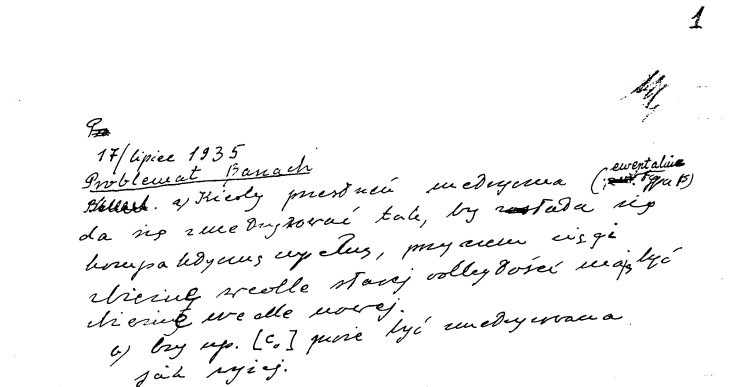 1
17/lipiec 1935
Problemat Banach
a) Kiedy przestrzeń metryczna (ewentualnie typu B)
da się zmetryzować tak, by stała się
kompaktyczną zupełną, przyczem ciągi
zbieżne wedle starej odległości mają być
zbieżne wedle nowej.
b) Czy np. [c₀] może być zmetryzowana
jak wyżej.